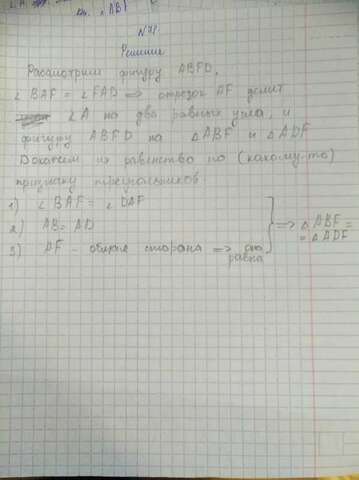 ∠ABF
N 78
Решение
Рассмотрим фигуру ABFD,
∠ BAF = ∠ FAD ⇒ отрезок AF делит
∠A на два равных угла, и
фигуру ABFD на △ABF и △ADF
Докажем их равенство по (какому-то)
признаку треугольников
1) ∠ BAF = ∠ DAF
2) AB = AD
3) AF - общая сторона ⇒ она равна
} ⇒ △ABF =
= △ADF